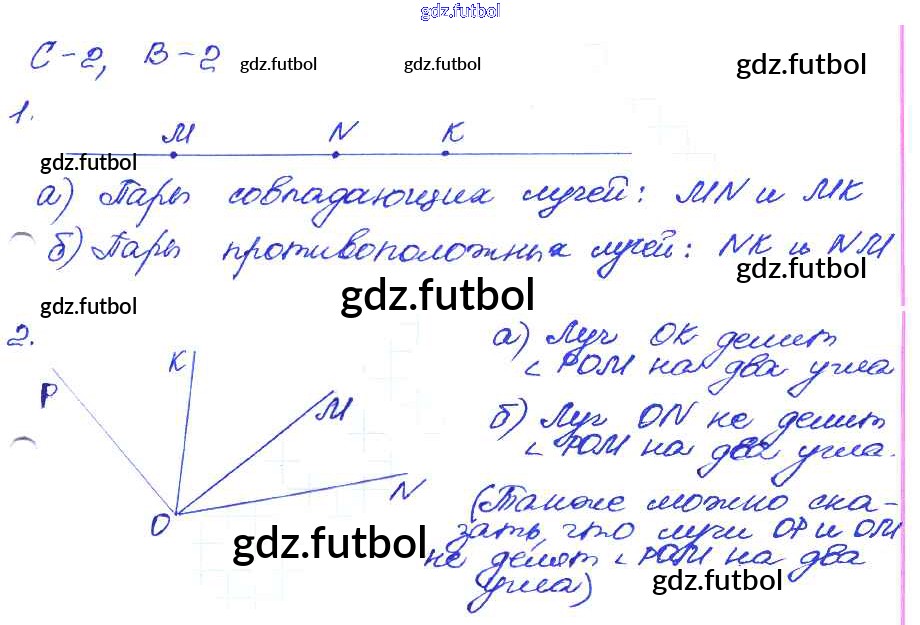 gdz.futbol
С-2, В-2 gdz.futbol gdz.futbol gdz.futbol
1.
M N K
gdz.futbol
а) Пары совпадающих лучей: MN и MK
б) Пары противоположных лучей: NK и NM
gdz.futbol
gdz.futbol gdz.futbol
2.
P K M N O
а) Луч OK делит
∠ POM на два угла
б) Луч ON не делит
∠ POM на два угла.
(Также можно ска-
зать, что лучи OP и OM
не делят ∠ POM на два
угла)
gdz.futbol gdz.futbol